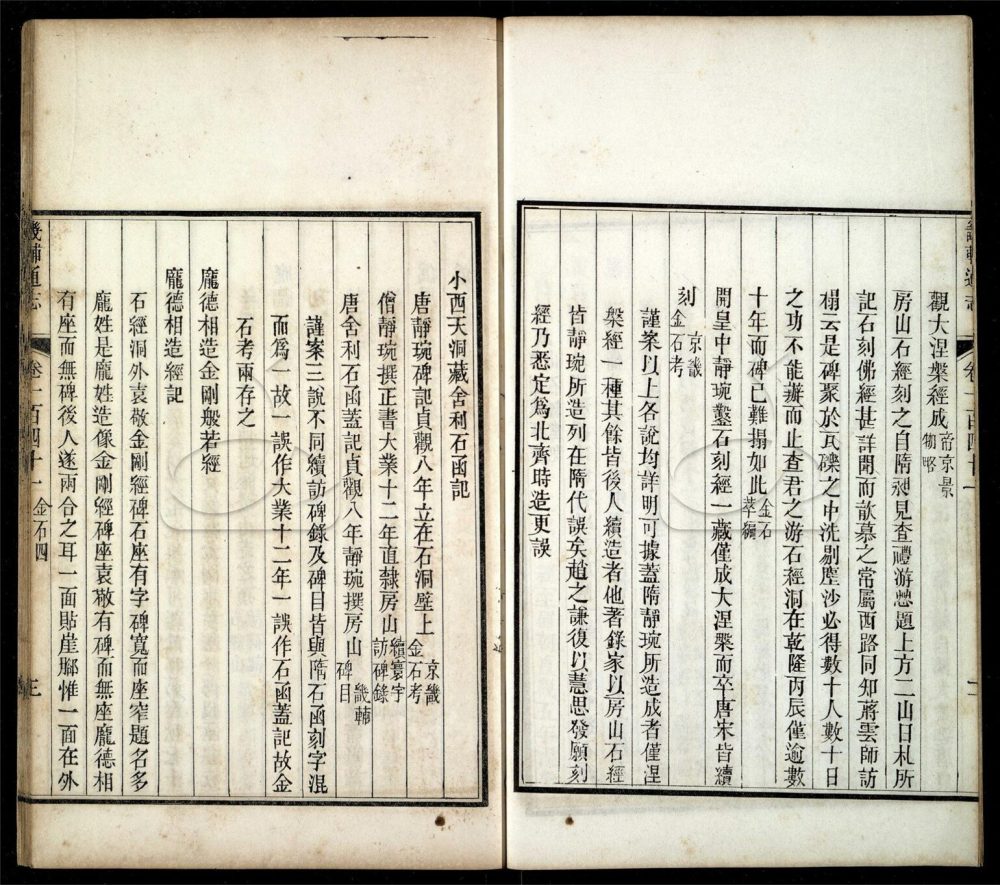 觀大涅槃經成帝京景
物略
房山石經刻之自隋昶見查禮游憩題上方二山日札所
記石刻佛經甚詳開而歆慕之常屬西路同知蔣雲師訪
榻云是碑聚於瓦礫之中洗剔塵沙必得數十人數十日
之功不能辦而止查君之游石經洞在乾隆丙辰僅逾數
十年而碑已難搨如此金石
萃編
開皇中靜琬鑿石刻經一藏僅成大涅槃而卒唐宋皆續
刻京畿
金石考
謹案以上各說均詳明可據蓋隋靜琬所造成者僅涅
槃經一種其餘皆後人續造者他著錄家以房山石經
皆靜琬所造列在隋代誤矣趙之謙復以慧思發願刻
經乃悉定為北齊時造更誤
小西天洞藏舍利石函記
唐靜琬碑記貞觀八年立在石洞壁上京畿
金石考
僧靜琬撰正書大業十二年直隸房山續寰宇
訪碑錄
唐舍利石函蓋記貞觀八年靜琬撰房山畿輔
碑目
謹案三說不同續訪碑錄及碑目皆與隋石函刻字混
而為一故一誤作大業十二年一誤作石函蓋記故金
石考兩存之
龐德相造金剛般若經
龐德相造經記
石經洞外袁敬金剛經碑石座有字碑寬而座窄題名多
龐姓是龐姓造像金剛經碑座袁敬有碑而無座龐德相
有座而無碑後人遂兩合之耳一面貼崖鄏惟一面在外
畿輔通志
卷一百四十一
金石四